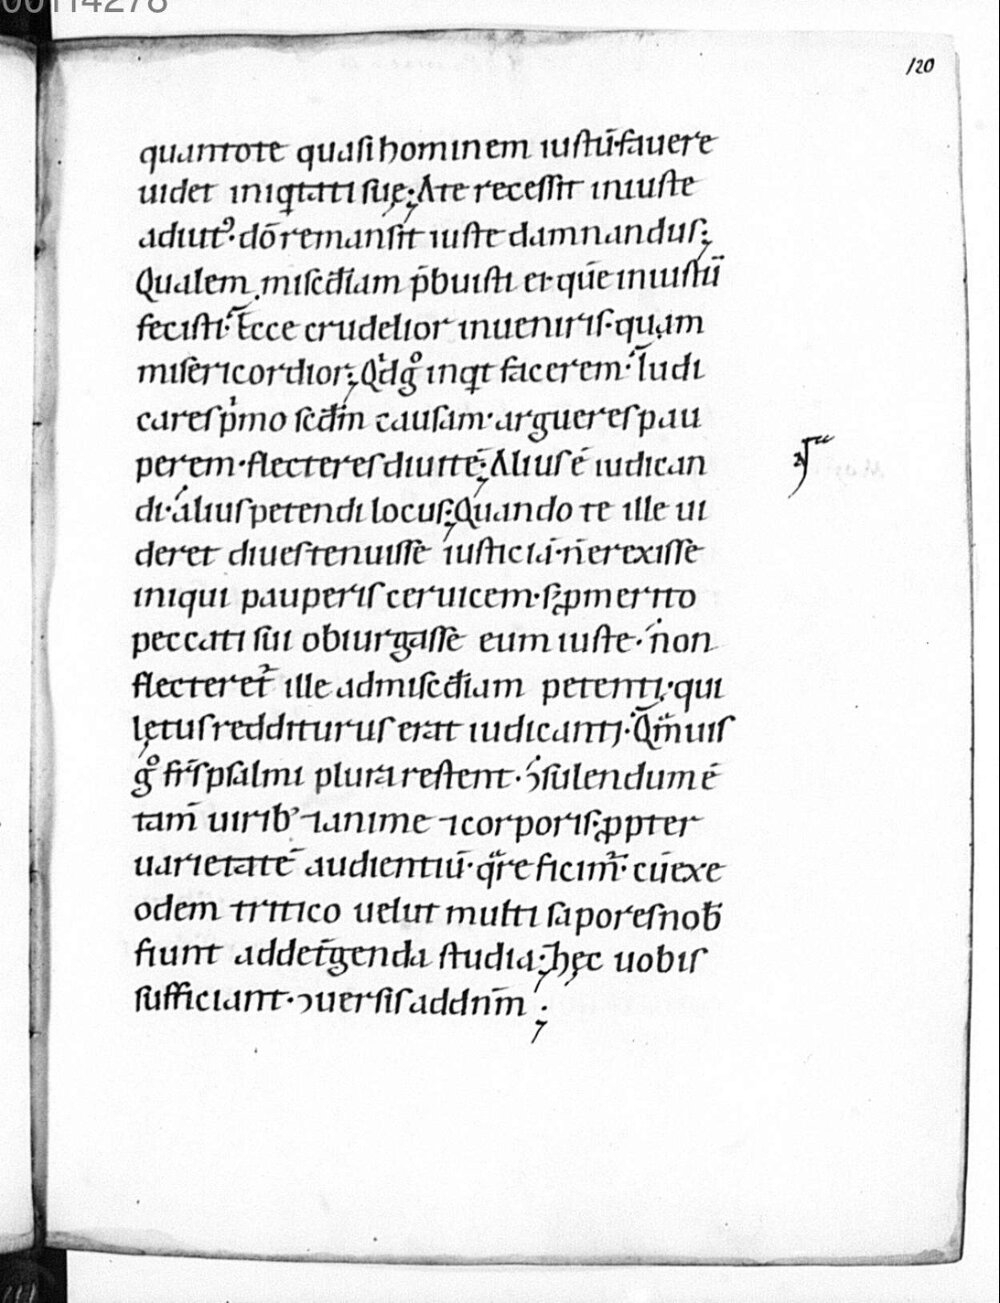 00114278
120
quanrote quasi hominem iustū·fauere
uidet iniqtati suę; A te recessit iniuste
adiut᾽· dō remansit iuste damnandus;
Qualem miscđiam p̄buisti et quē iniustū
fecisti·́ Ecce crudelior inueniris· quam
misericordior; Qͥd gͦ inqt facerem·́ Iudi
cares pͥmo scđm causam· argueres pau
perem· flecteres diuitē; Alius ē iudican
di· alius petendi locus; Quando te ille ui
deret diues tenuisse iusticiā· ñ erexisse
iniqui pauperis ceruicem· sꝫ p merito
peccati sui obiurgasse eum iuste·́ non
flecteret᾽ ille ad miscđiam petenti· qui
lętus redditurus erat iudicanti· Qm̄uis
gͦ fr̄s psalmi plura restent· ↄsulendum ē
tam̄ uirib᾽ ⁊ anime ⁊ corporis ꝓpter
uarietatē audientiū· qͣre ficim᾽· cū ex e
odem tritico uelut multi sapores nob̄
fiunt ad det̄genda studia; hęc uobis
sufficiant· ↄuersis ad dn̄m ;